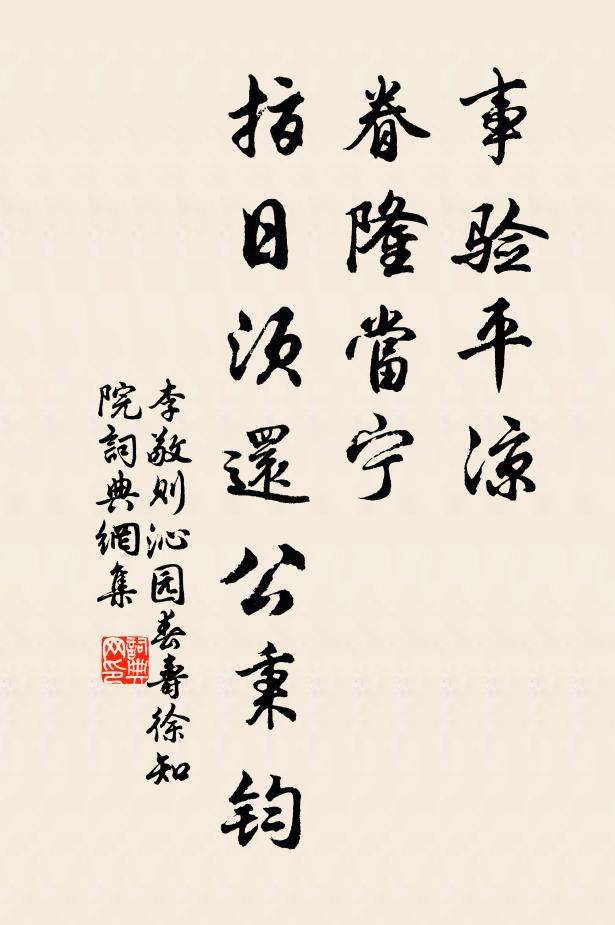 事验平凉
眷隆當宁
指日须還公秉钧
李敬则沁园春寿徐知
院詞典網集
詞典网印